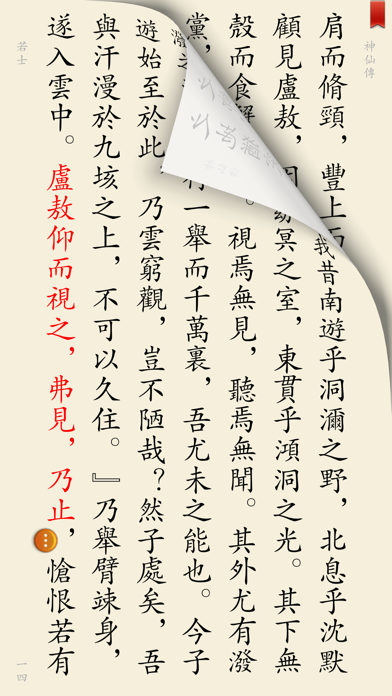 神仙傳
肩而脩頸，豐上而我昔南遊乎洞瀰之野，北息乎沈默
顧見盧敖，冥之室，東貫乎澒洞之光。其下無
殼而食視焉無見，聽焉無聞。其外尤有潑
黨，一舉而千萬裏，吾尤未之能也。今子
遊始至於此，乃雲窮觀，豈不陋哉？然子處矣，吾
與汗漫於九垓之上，不可以久住。』乃舉臂竦身，
遂入雲中。盧敖仰而視之，弗見，乃止，愴恨若有
若士
一四